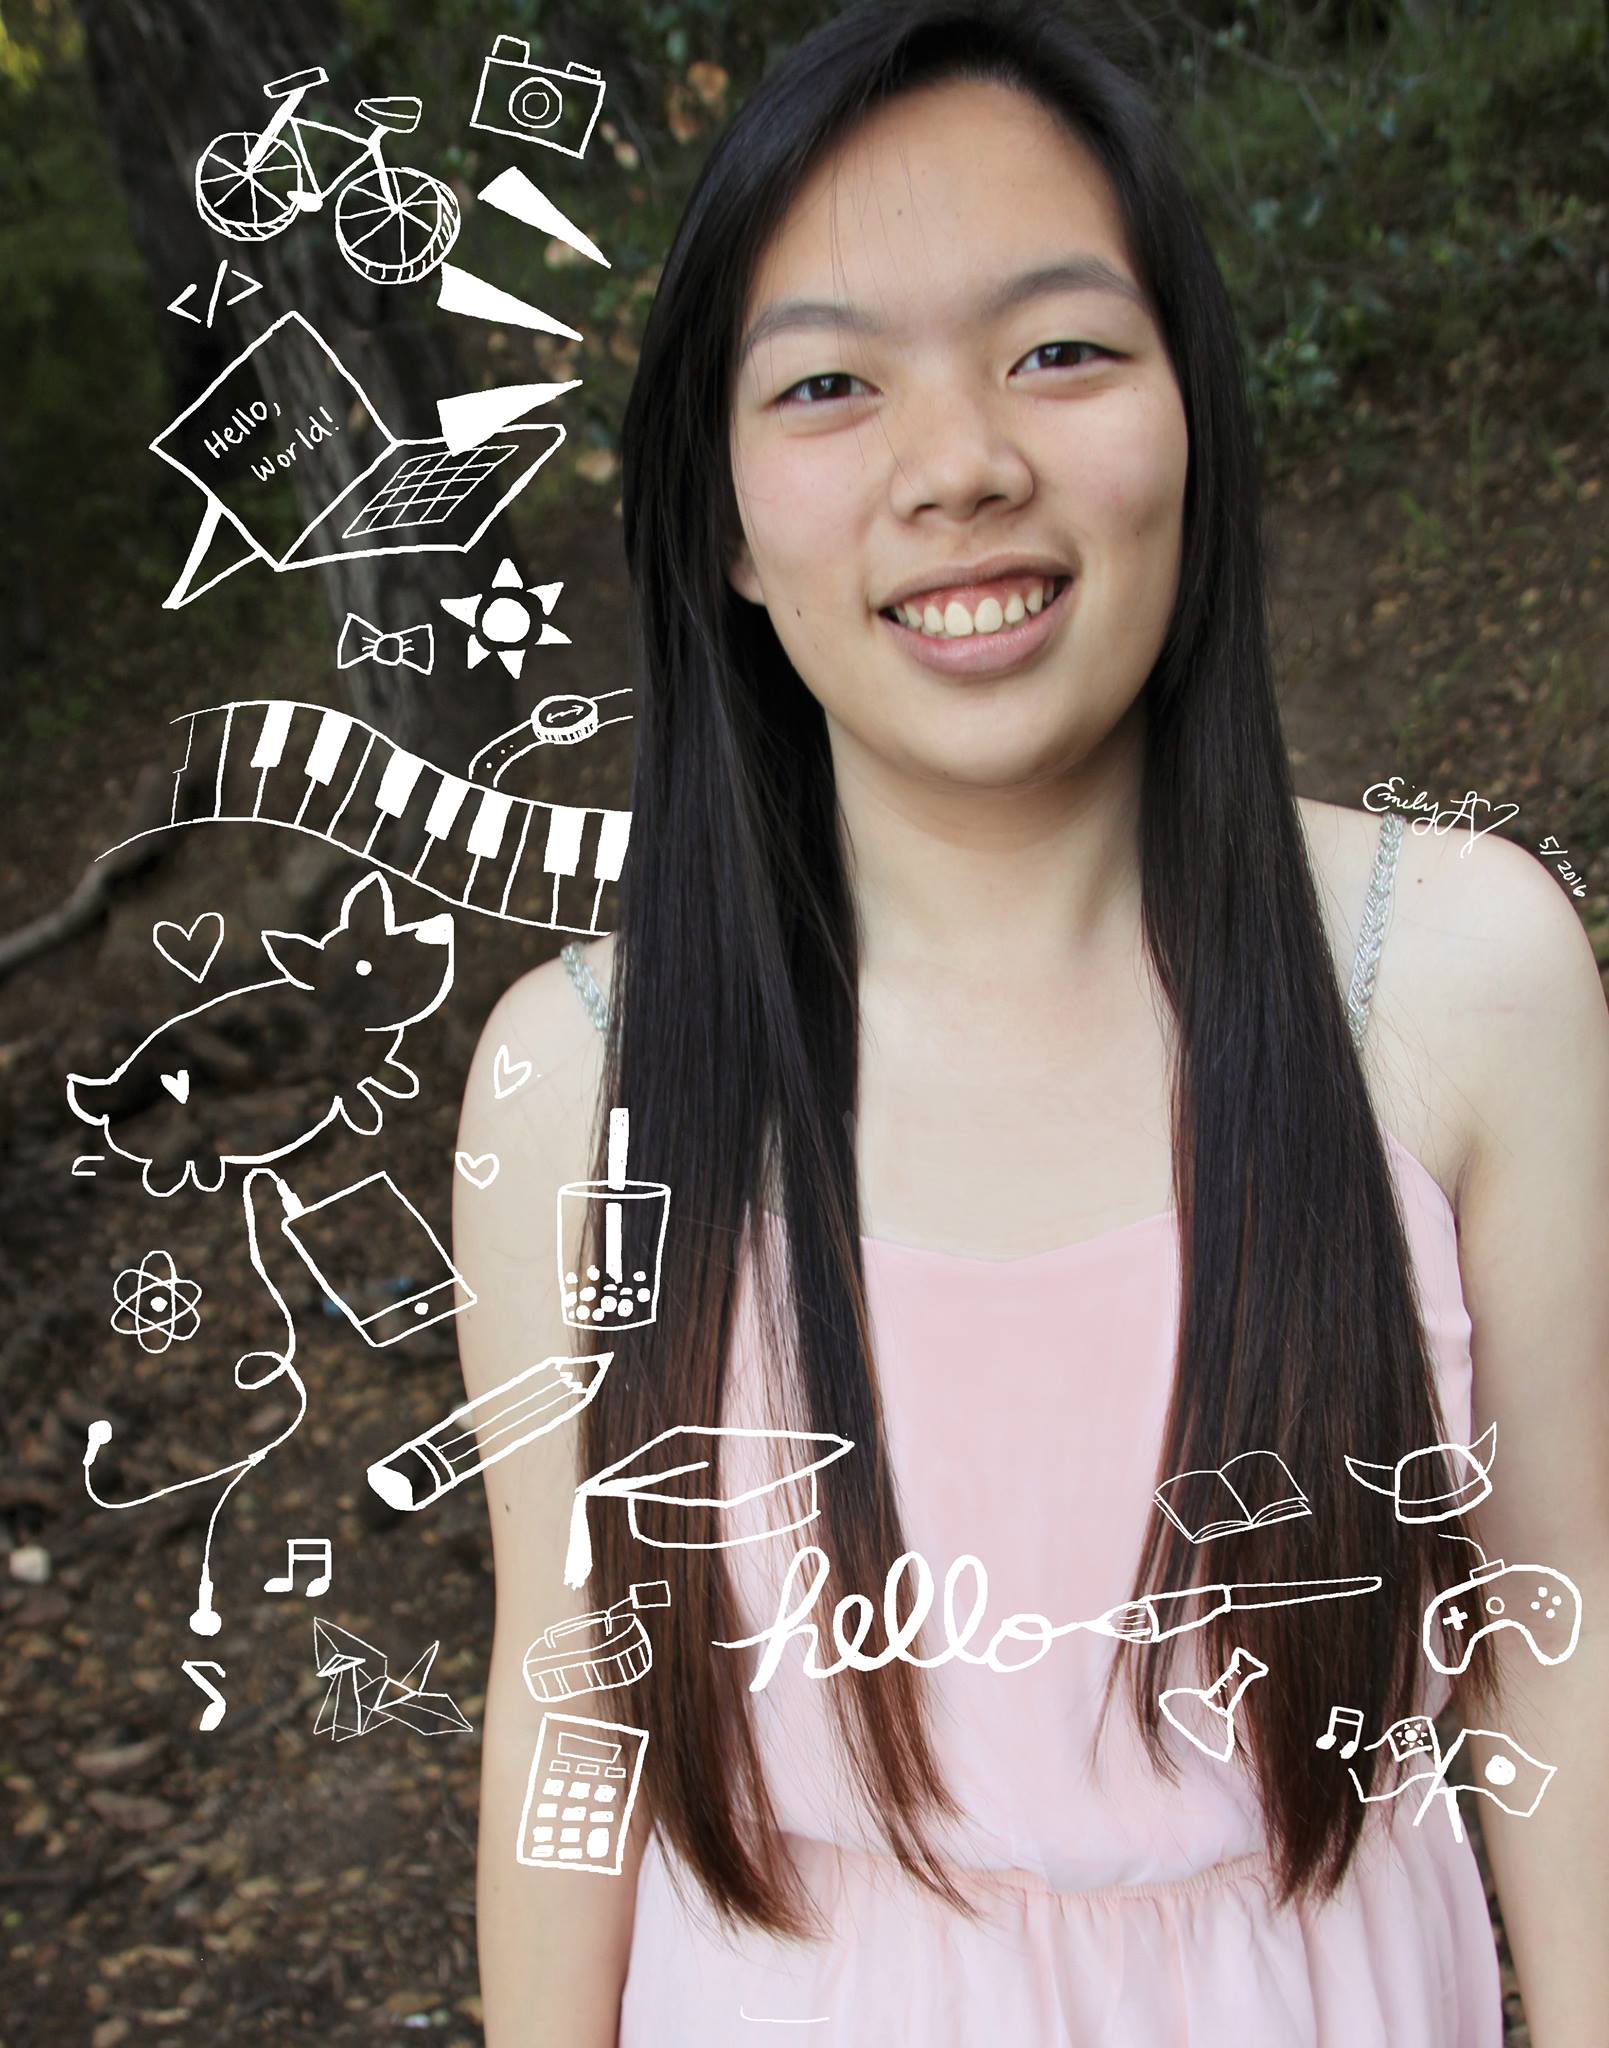 </>
Hello,
World!
Emily
5/2016
hello